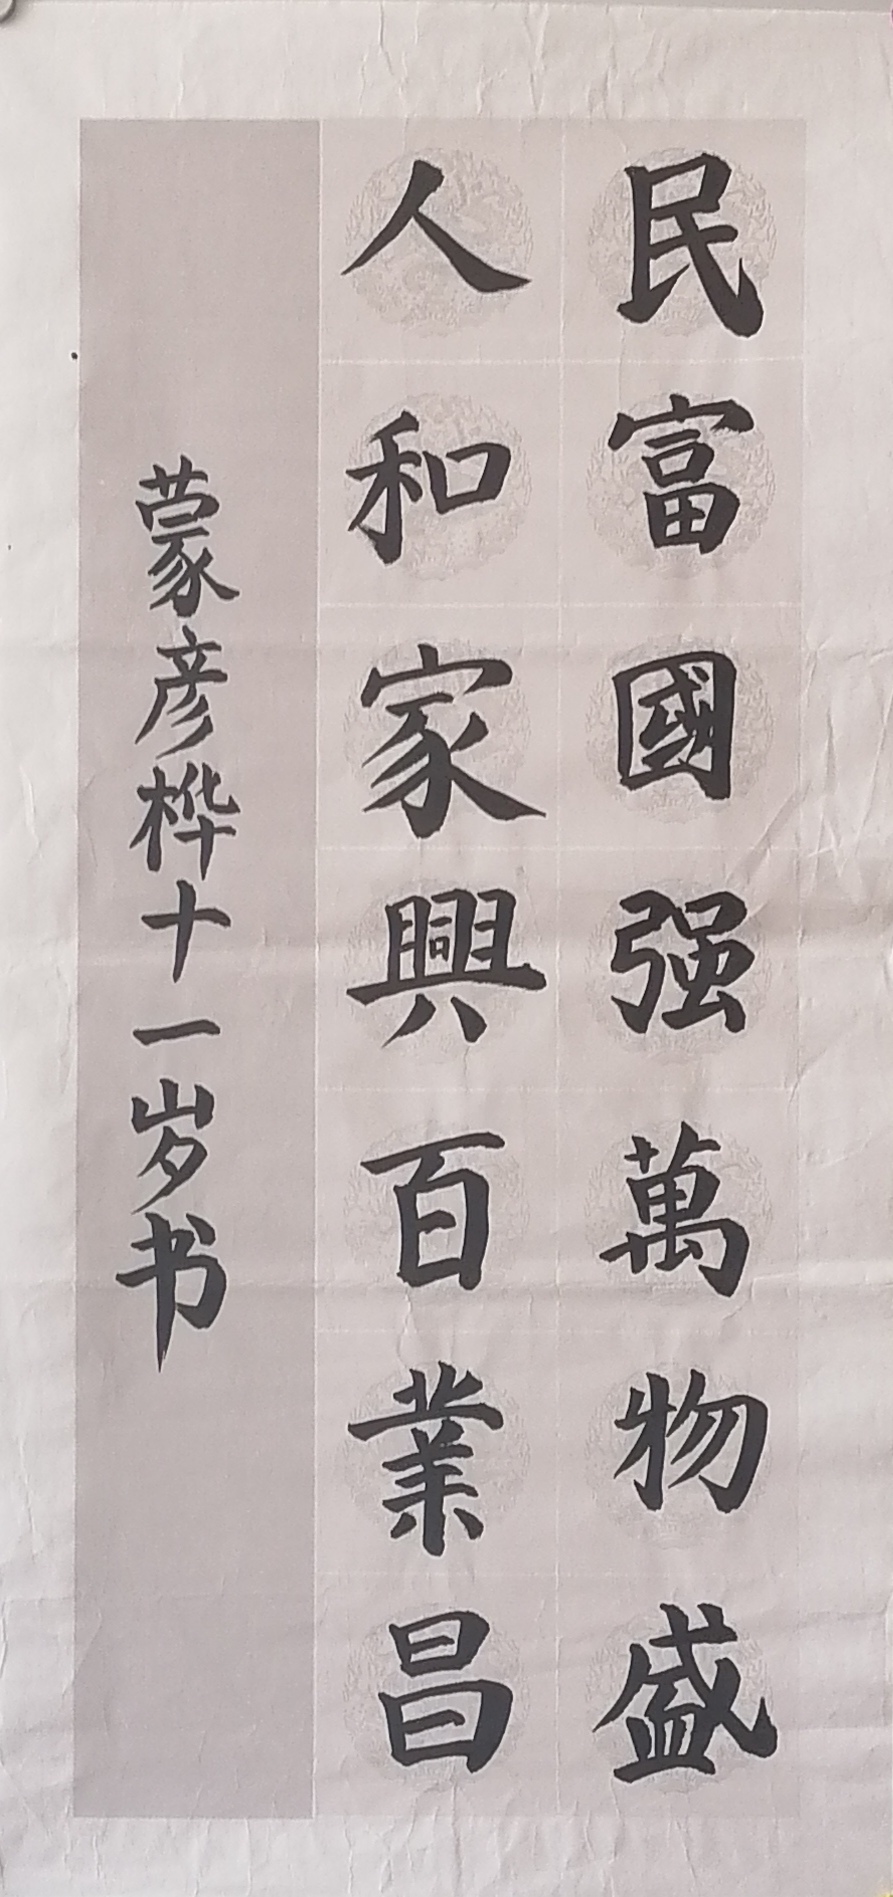 民富國强萬物盛
人和家興百業昌
蒙彦桦十一岁书